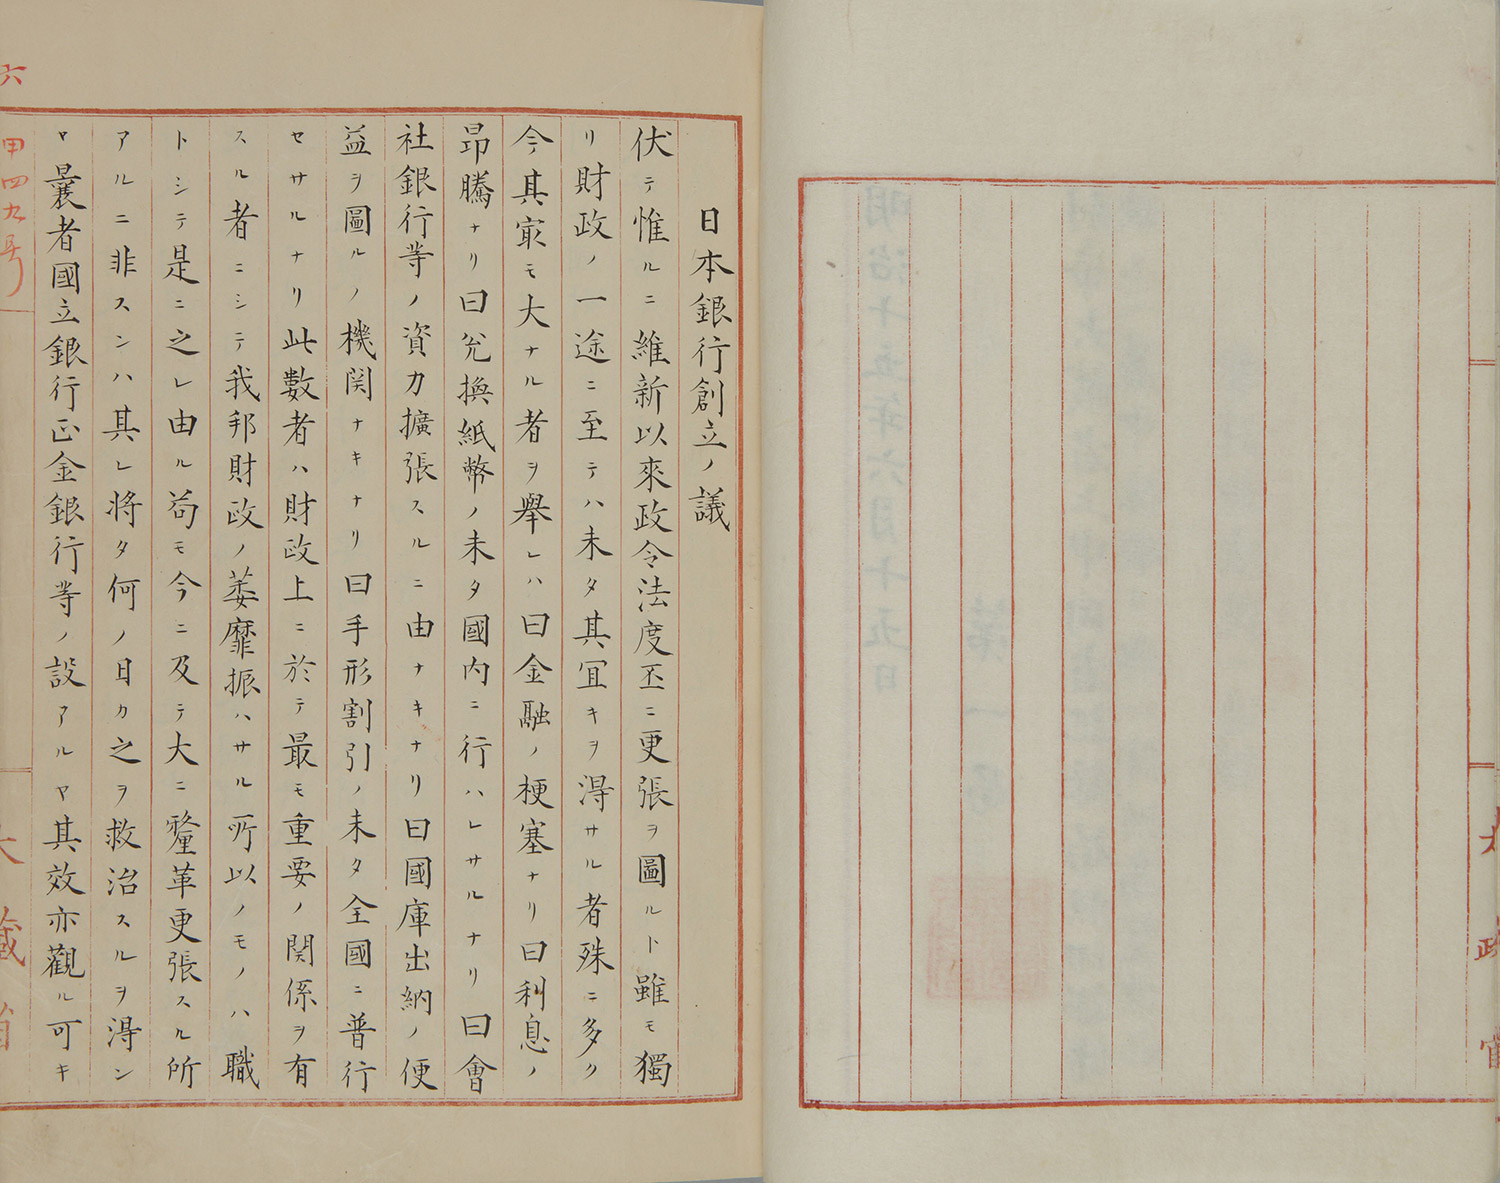 太政官
日本銀行創立ノ議
伏テ惟ルニ維新以來政令法度丕ニ更張ヲ圖ルト雖モ獨
リ財政ノ一途ニ至テハ未タ其冝キヲ得サル者殊ニ多ク
今其㝡モ大ナル者ヲ舉レハ曰金融ノ梗塞ナリ曰利息ノ
昂騰ナリ曰兌換紙幣ノ未タ國内ニ行ハレサルナリ曰會
社銀行等ノ資力擴張スルニ由ナキナリ曰國庫出納ノ便
益ヲ圖ルノ機関ナキナリ曰手形割引ノ未タ全國ニ普行
セサルナリ此數者ハ財政上ニ於テ最モ重要ノ関係ヲ有
スル者ニシテ我邦財政ノ萎靡振ハサル所以ノモノハ職
トシテ是ニ之レ由ル苟モ今ニ及テ大ニ釐革更張スル所
アルニ非スンハ其レ将タ何ノ日カ之ヲ救治スルヲ得ン
ヤ曩者國立銀行正金銀行等ノ設アルヤ其效亦觀ル可キ
六
甲四九号
大藏省